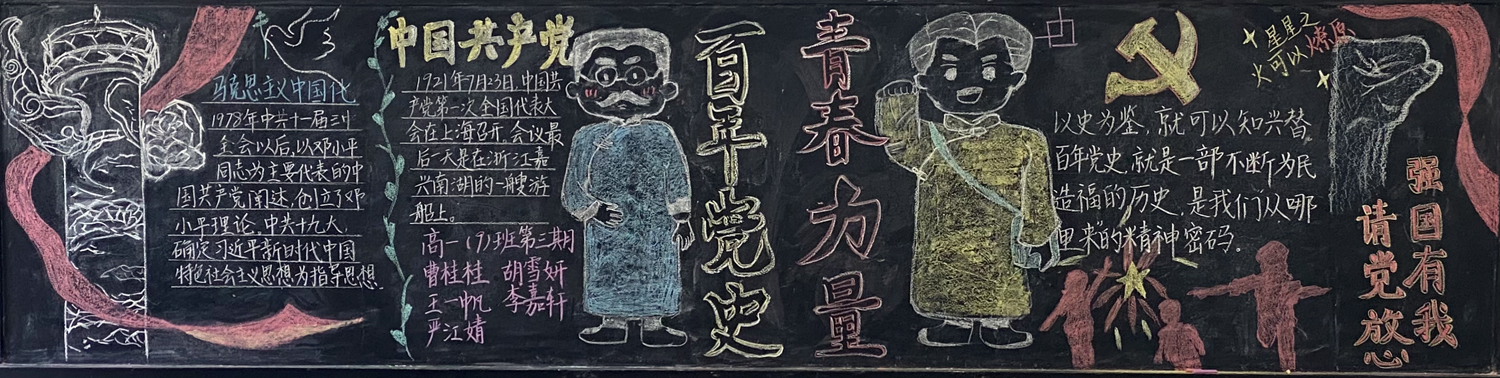 马克思主义中国化
1978年中共十一届三中
全会以后,以邓小平
同志为主要代表的中
国共产党阐述,创立了邓
小平理论。中共十九大,
确定习近平新时代中国
特色社会主义思想为指导思想.
中国共产党
1921年7月23日,中国共
产党第一次全国代表大
会在上海召开,会议最
后一天是在浙江嘉
兴南湖的一艘游
船上。
高一(9)班第三期
曹桂桂 胡雪妍
王一帆 李嘉轩
严江婧
百年党史
青春力量
以史为鉴,就可以知兴替。
百年党史,就是一部不断为民
造福的历史,是我们从哪
里来的精神密码。
星星之
火可以燎原
强国有我
请党放心